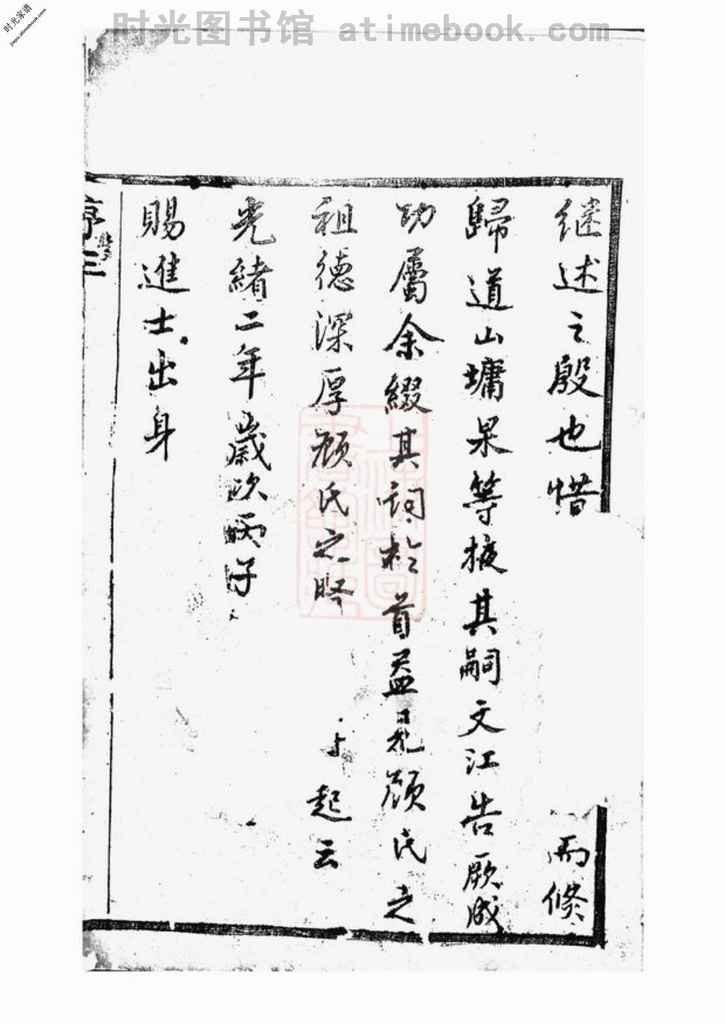 时光图书馆 atimebook.com
时光家谱
继述之殷也惜 而倏
歸道山墉杲等掖其嗣文江告厥成
功屬余綴其詞於首益見顏氏之
祖德深厚顏氏之 起云
光緒二年歲次丙子
賜進士出身
序 三